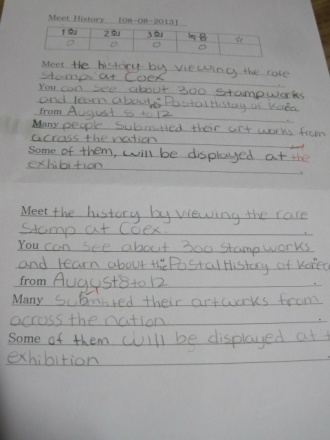 Meet History [08-08-2013]
1회 2회 3회 녹음 ☆
○ ○ ○ ○
Meet the history by viewing the rare
stamps at Coex
You can see about 300 stamp works
and learn about the Postal History of Korea
from August 8 to 12
Many people submitted their art works from
across the nation
Some of them, will be displayed at the
exhibition
Meet the history by viewing the rare
Stamp at Coex.
You can see about 300 stamp works
and learn about the Postal History of Korea
from August 8 to 12
Many submitted their artworks from
across the nation
Some of them will be displayed at t
exhibition